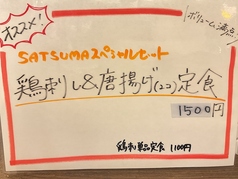 オススメ!
ボリューム満点!
SATSUMAスペシャルセット
鶏刺し&唐揚げ(2コ)定食
1500円
鶏刺し単品定食 1100円